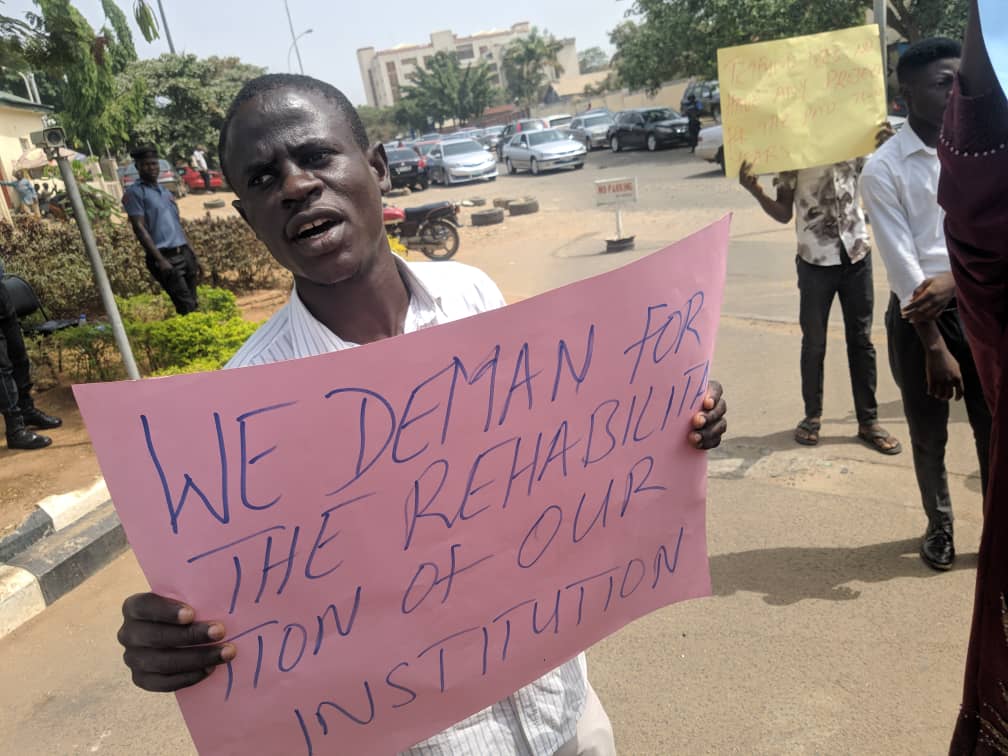 WE DEMAN FOR
THE REHABILITA
TION OF OUR
INSTITUTION
NO PARKING
HAVE ANY